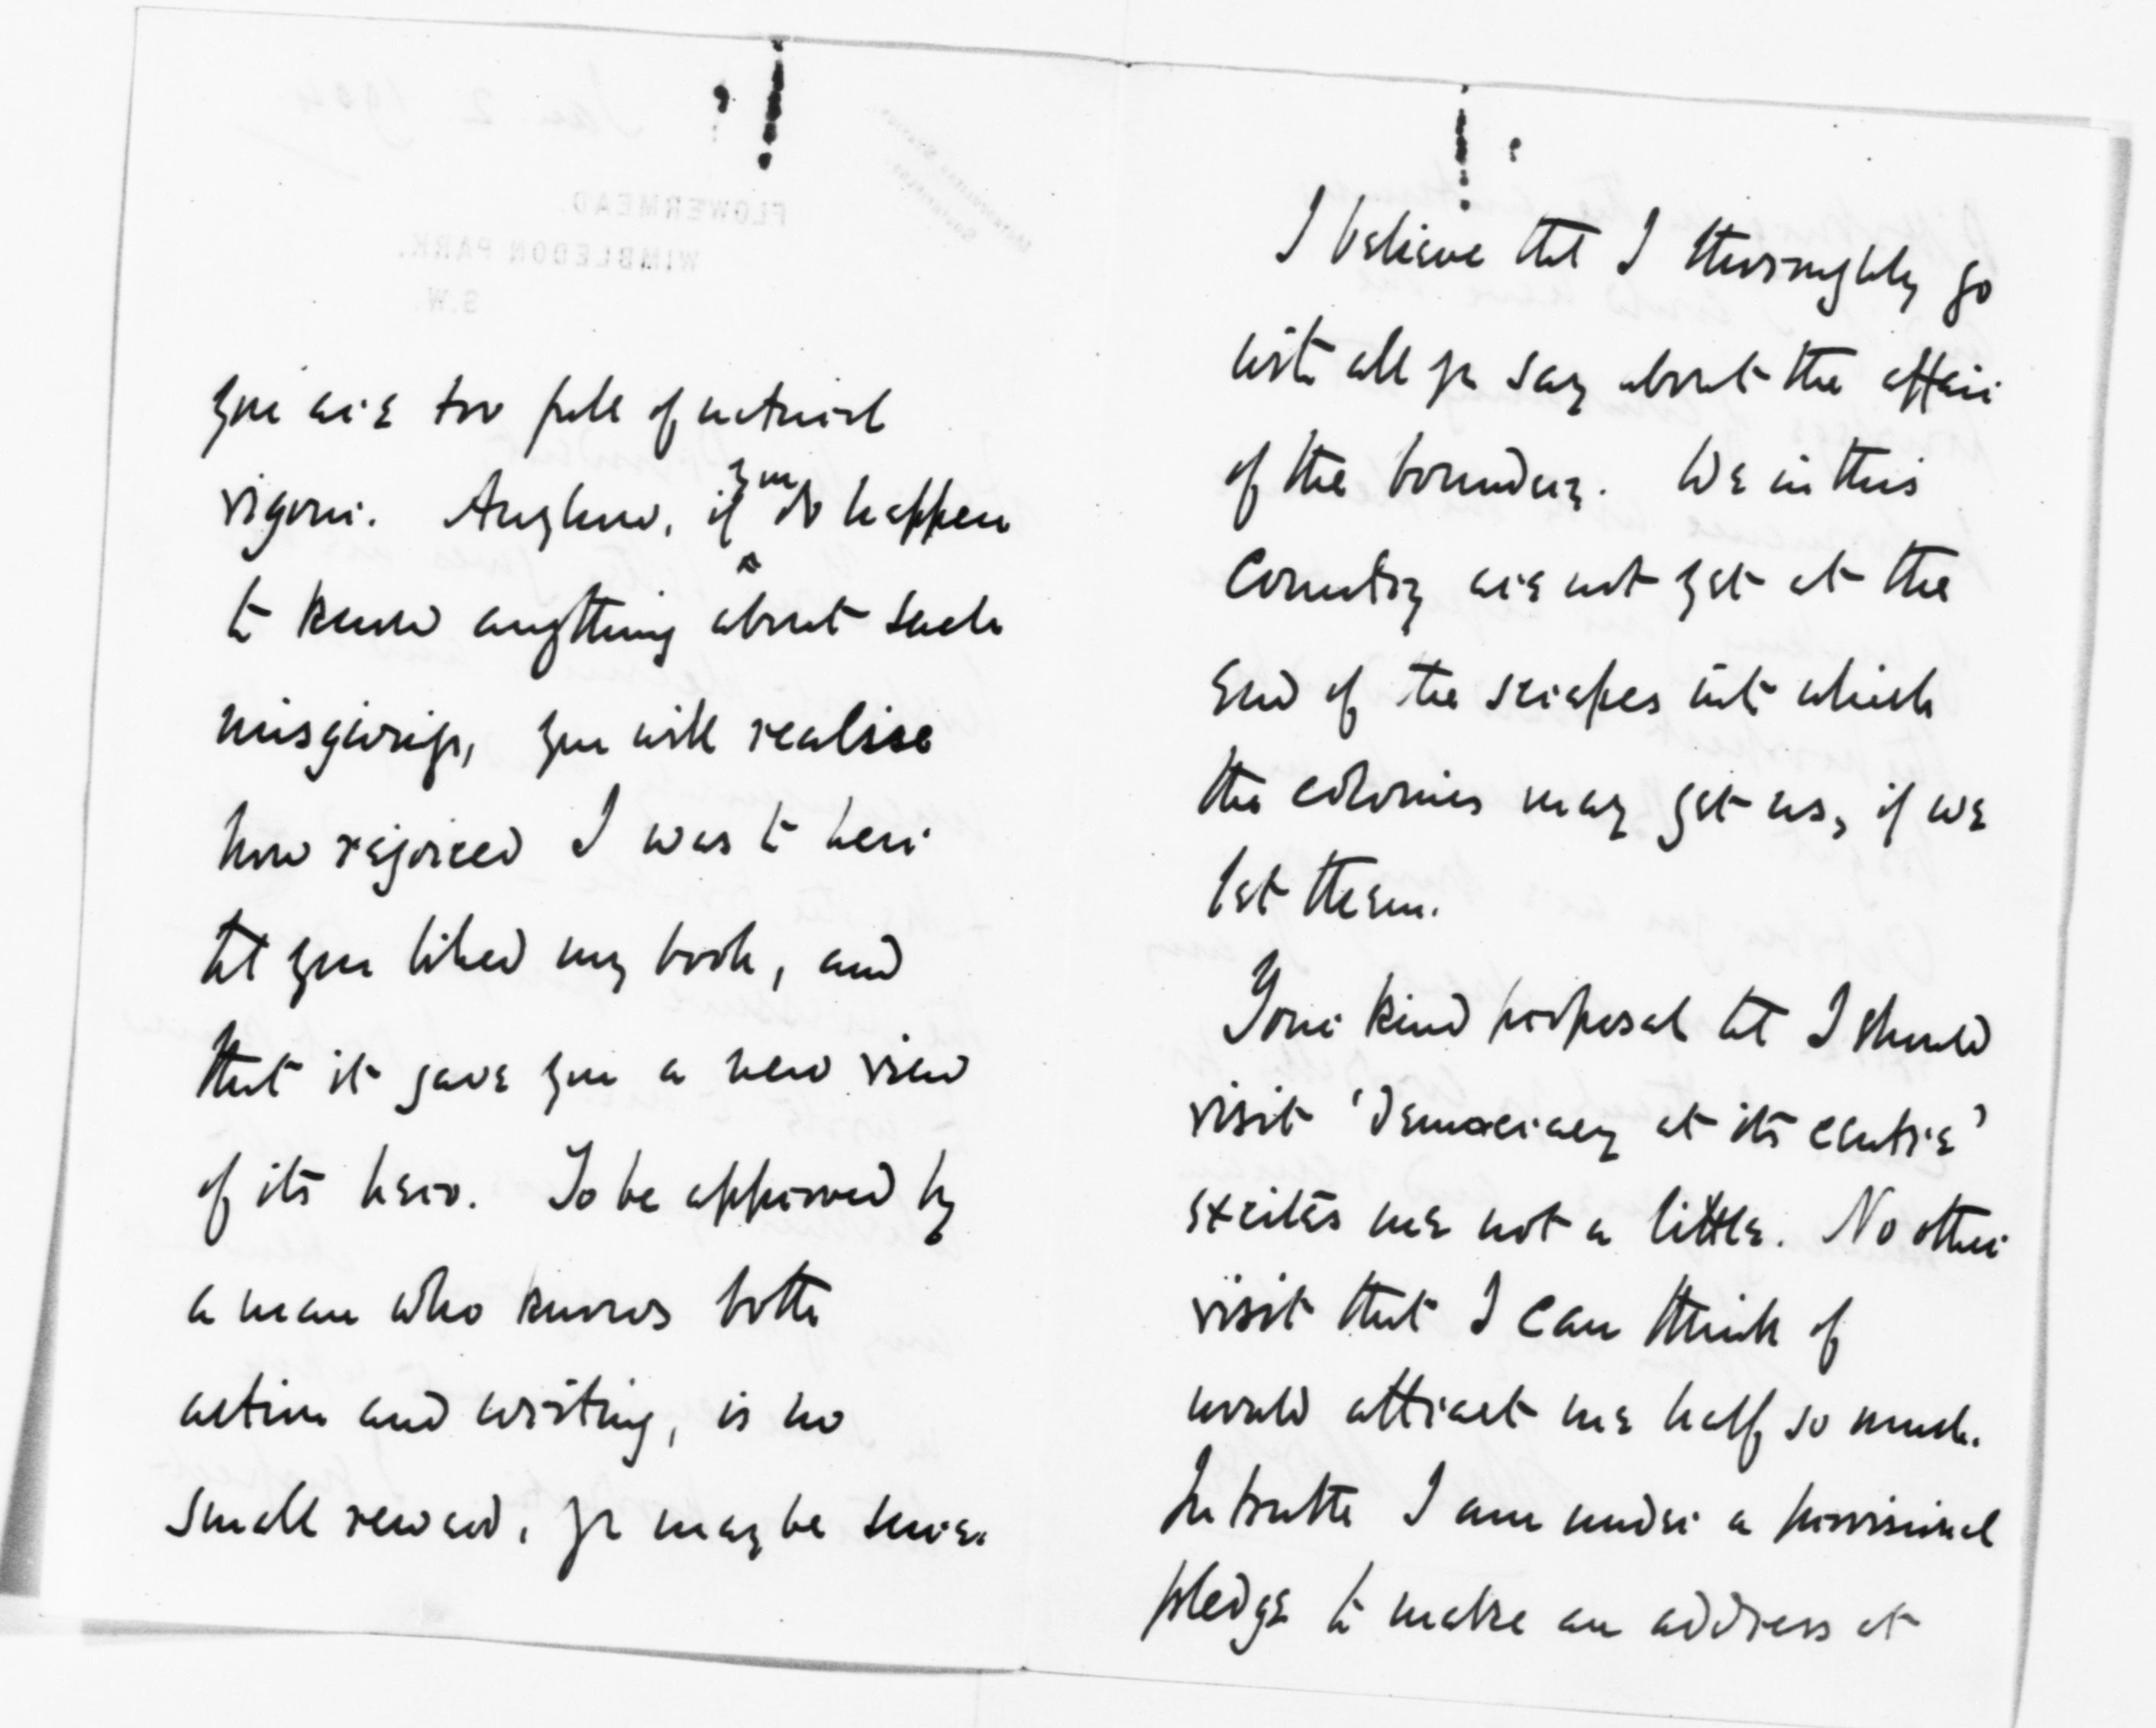 you are too full of natural
vigour. Anyhow, if you do happen
to know anything about such
misgivings, you will realise
how rejoiced I was to hear
tt you liked my book, and
that it gave you a new view
of its hero. To be approved by
a man who knows both
action and writing, is no
small reward, yr may be sure.
I believe that I thoroughly go
with all yr say about the affair
of the boundary. We in this
country are not yet at the
end of the scrapes into which
the colonies may get us, if we
let them.
Your kind proposal tt I should
visit 'Democracy at its centre'
excites me not a little. No other
visit that I can think of
would attract me half so much.
In truth I am under a provisional
pledge to make an address at
Jan. 2 1904
FLOWERMEAD.
WIMBLEDON PARK.
S.W.